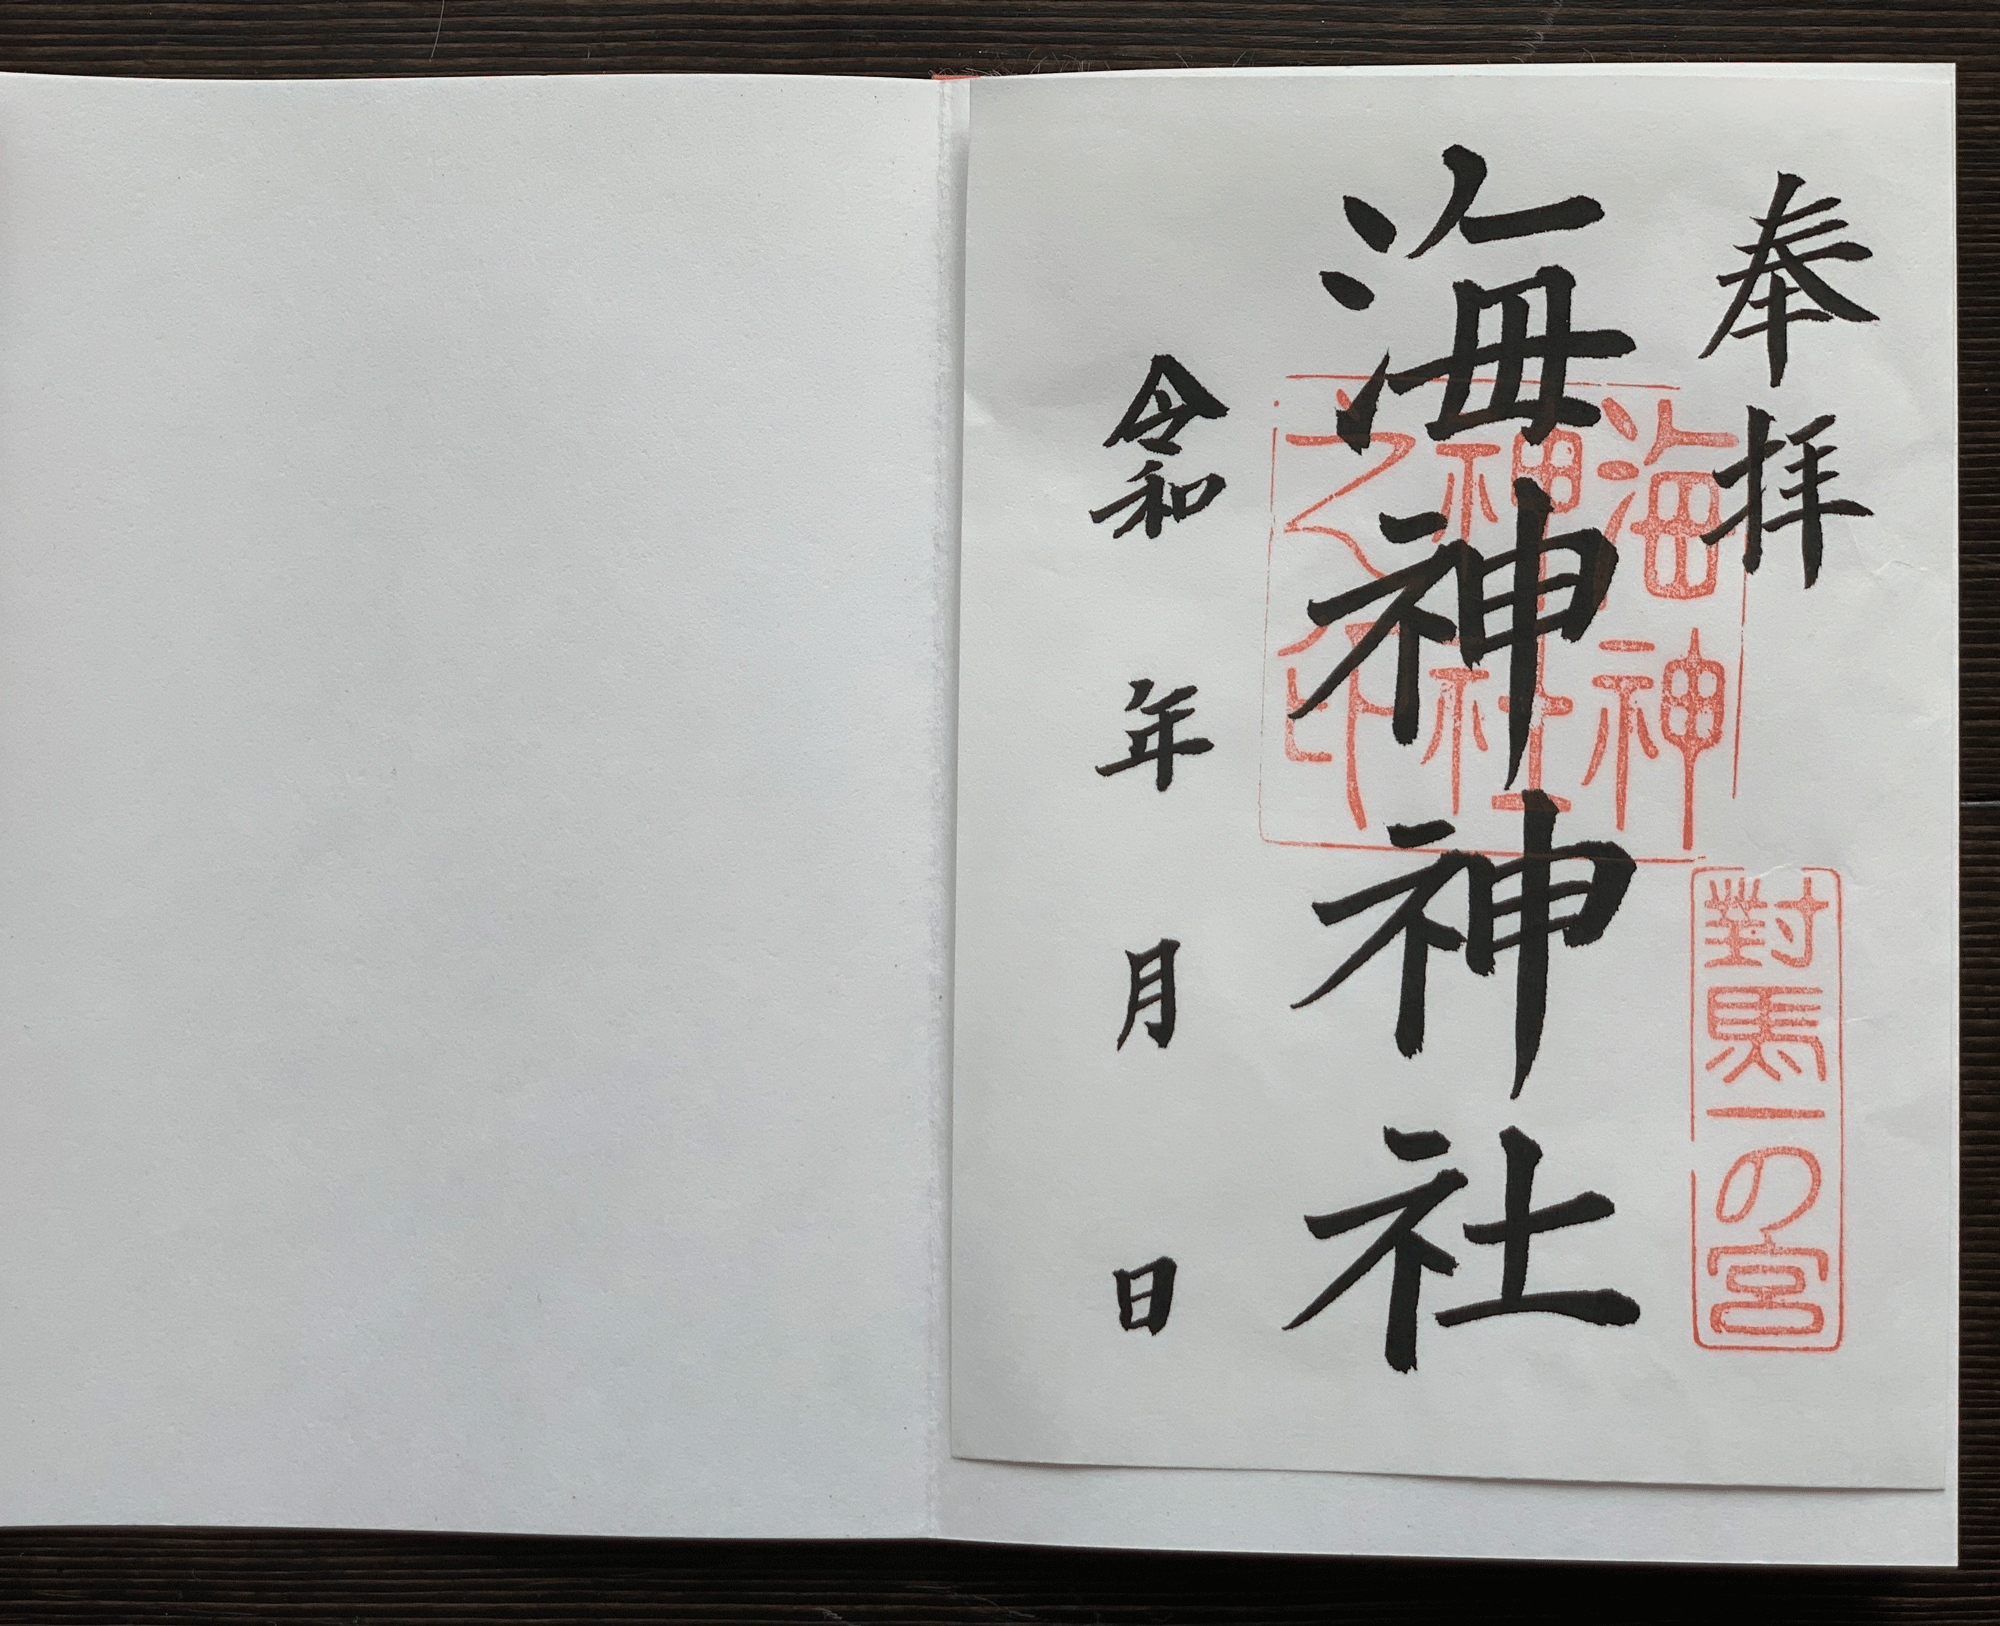 奉拝
對馬一の宮
海神神社
海神
神社
之印
令和 年 月 日